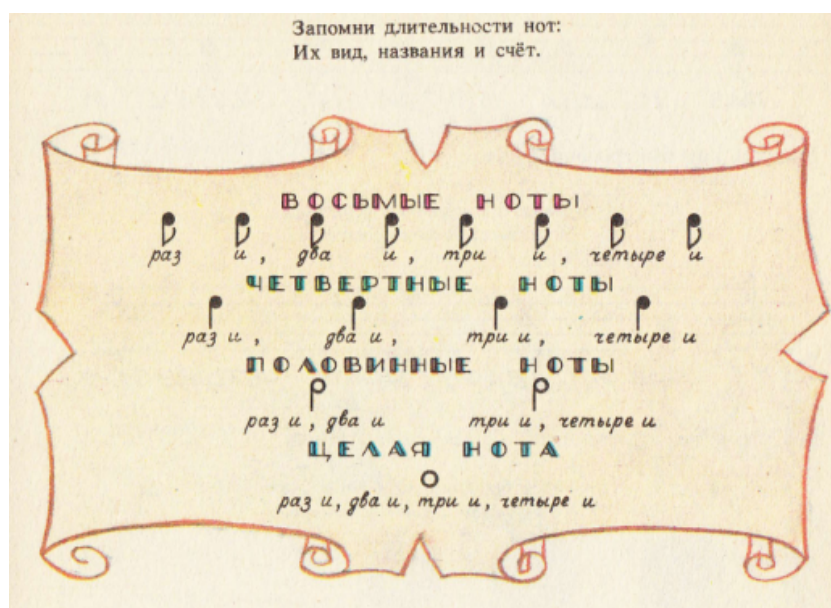 Запомни длительности нот:
Их вид, названия и счёт.
ВОСЬМЫЕ НОТЫ
раз и, два и, три и, четыре и
ЧЕТВЕРТНЫЕ НОТЫ
раз и, два и, три и, четыре и
ПОЛОВИННЫЕ НОТЫ
раз и, два и три и, четыре и
ЦЕЛАЯ НОТА
раз и, два и, три и, четыре и